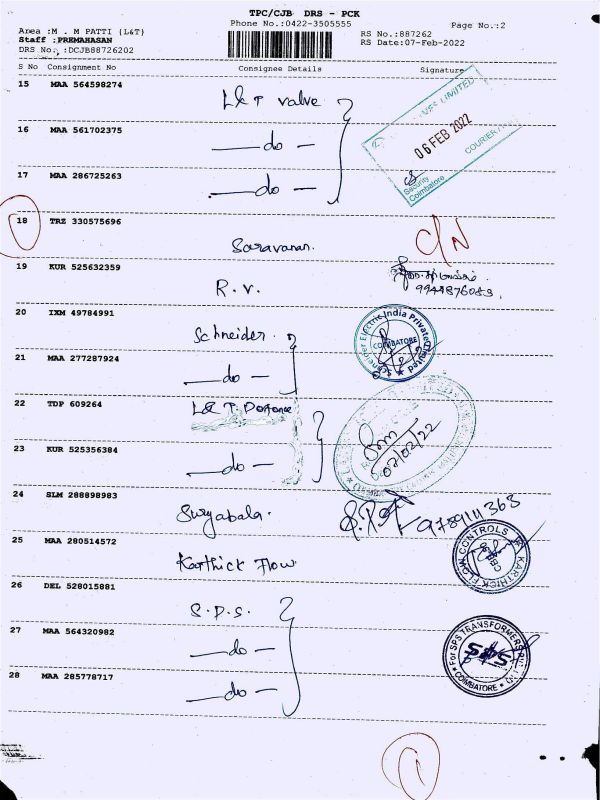 TPC/CJB DRS - PCK
Phone No.:0422-3505555
Page No.:2
Area :M . M PATTI (L&T)
Staff :PREMAHASAN
DRS No. :DCJB88726202
RS No.:887262
RS Date:07-Feb-2022
S No Consignment No Consignee Details Signature
15 MAA 564598274
L & T valve
16 MAA 561702375
— do —
17 MAA 286725263
— do —
06 FEB 2022
Security
Coimbatore
COURIER
18 TRZ 330575696
Saravanan.
C/N
19 KUR 525632359
R. V.
9944876083
20 IXM 49784991
Schneider
Schneider Electric India Private Limited
COIMBATORE
21 MAA 277287924
— do —
22 TDP 609264
L & T. Defence
23 KUR 525356384
— do —
07/02/22
24 SLM 288898983
Suryabala.
25 MAA 280514572
Karthick Flow
KARTHICK FLOW CONTROLS
CBE
26 DEL 528015881
S.P.S.
27 MAA 564320982
— do —
For SPS TRANSFORMERS
SPS
COIMBATORE
28 MAA 285778717
— do —
1